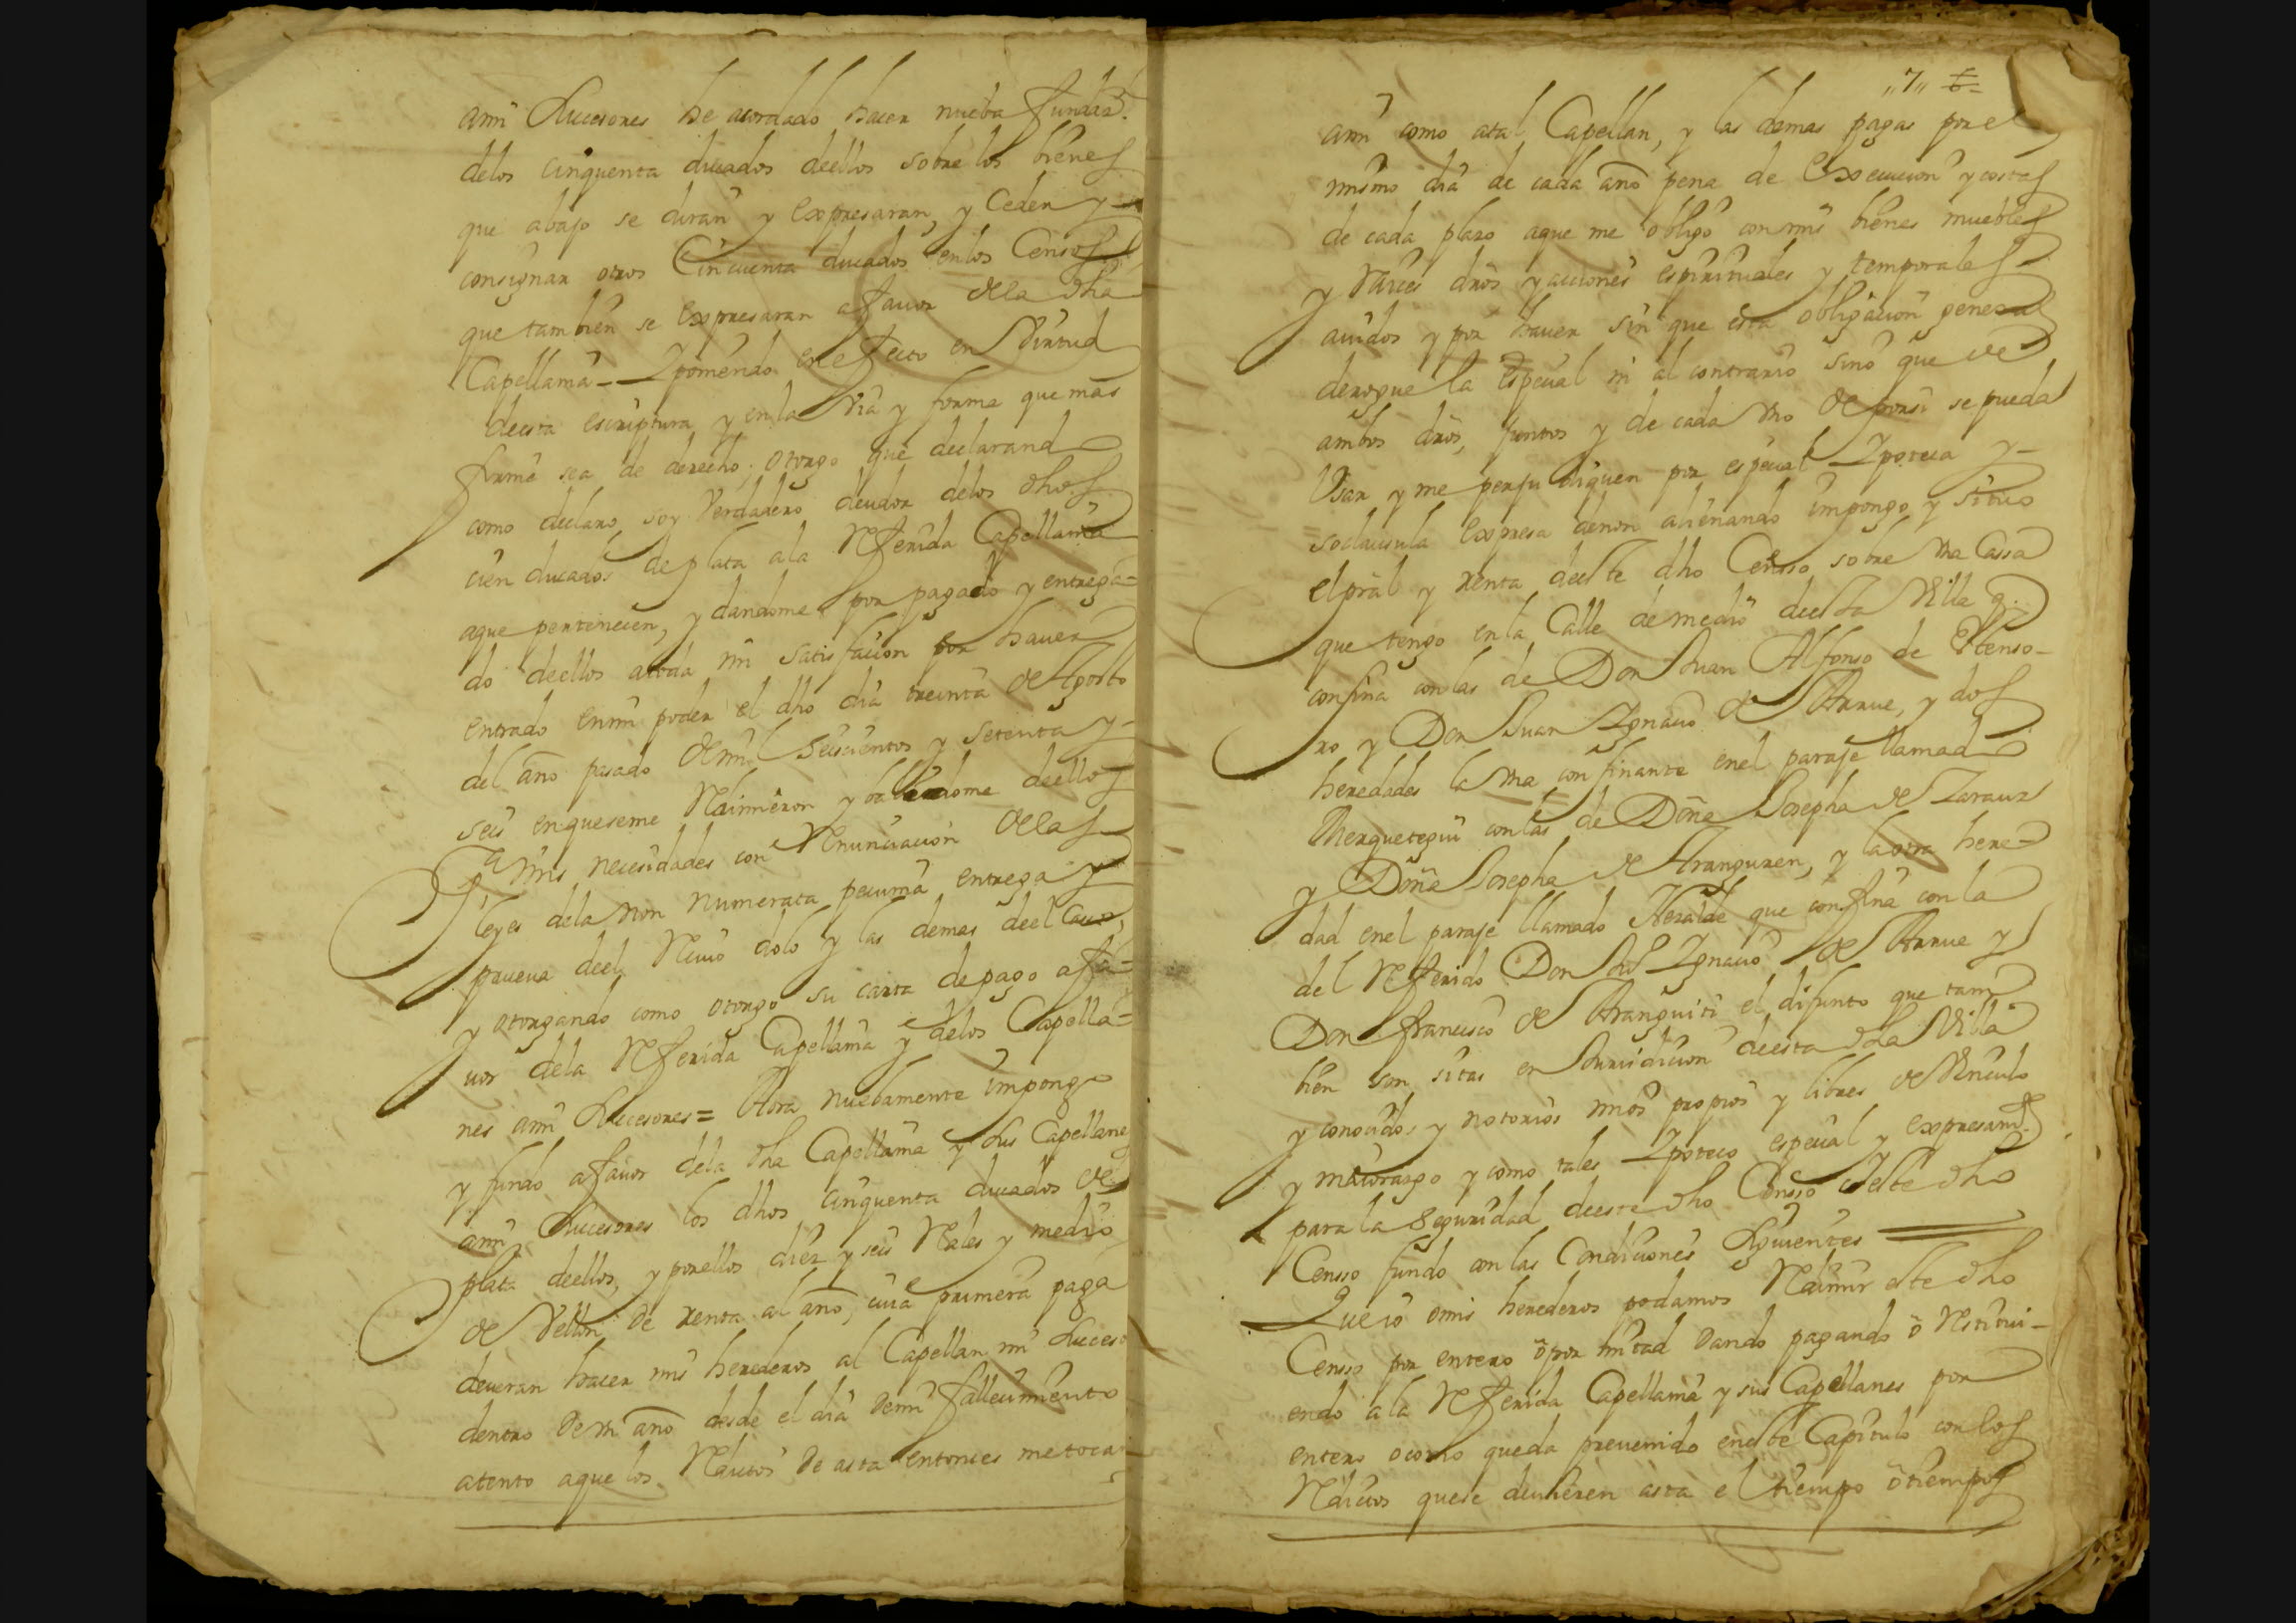 ami Succesores he acordado hacer nueba fundaz.
delos cinquenta ducados deellos sobre los bienes
que abajo se diran y Expresaran, y Ceder y
consignar otros Cincuenta ducados enlos Censos
que tambien se Expresaran afauor dela dha
Capellania - Iponiendo en efecto en Virtud
deesta escriptura y enla Via y forma que mas
firme sea de derecho; otorgo que declarando
como declaro, soy Verdadero deudor delos dhos
cien ducados de plata ala Referida Capellania
aque pertinecen, y dandome por pagado y entrega=
do deellos atoda mi satisfacion por hauer
entrado enmi poder el dho dia treinta de Agosto
del año pasado de mil Seiscientos y setenta y
seis enqueseme Redimieron y baliendome deellos
a mis necesidades con Renunciacion delas
leyes dela non numerata pecunia entrega y
prueua deel Reciuo dolo y las demas deel caso,
y otorgando como otorgo su carta depago afa=
uor dela Referida Capellania y delos Capella=
nes ami Succesores = Aora nuebamente impongo
y fundo afauor dela dha Capellania y sus Capellanes
ami Succesores los dhos cinquenta ducados de
plata deellos, y porellos diez y seis Reales y medio
de Vellon de renta al año, cuia primera paga
deueran hacer mis herederos al Capellan mi Succesor
dentro de un año desde el dia demi fallecimiento
atento aque los Reditos de asta entonces metocan
"7" 6
ami como atal Capellan, y las demas pagas por el
mismo dia de cada año pena de Execucion y costas
de cada plazo aque me obligo con mis bienes muebles
y Raices dros y acciones espirituales y temporales
auidos y por hauer sin que esta obligacion general
derogue la especial ni al contrario sino que de
ambos dros, juntos y de cada uno de porsi se pueda
Usar y me perjudiquen por especial Ipoteca y
soclausula Expresa denon alienando impongo y situo
elpral y renta deeste dho Censso sobre una Cassa
que tengo enla Calle demedio deesta Villa q.
confina conlas de Don Juan Alfonso de Atenso-
ro y Don Juan Ignacio de Arrue, y dos
heredades la una confinante enel paraje llamado
Merquetegui conlas de Doña Josepha de Zarauz
y Doña Josepha de Aranguren, y laotra here=
dad enel paraje llamado Heralde que confina con la
del Referido Don Ju Ignacio de Arrue y
Don francisco de Aranguiti el difunto que tam
bien son sitas en Jurisdicion deesta dha Villa
y conocidos y notorios mios propios y libres de Vinculo
y maiorazgo y como tales Ipoteco especial y expresamte
para la seguridad deeste dho Censso y este dho
Censso fundo con las Condiciones Siguientes
Que io omis herederos podamos Redimir este dho
Censso por entero ò por mitad dando pagando ò Restitui-
endo a la Referida Capellania y sus Capellanes por
entero ocomo queda preuenido eneste Capitulo con los
Reditos quese deuieren asta el tiempo ò tiempos